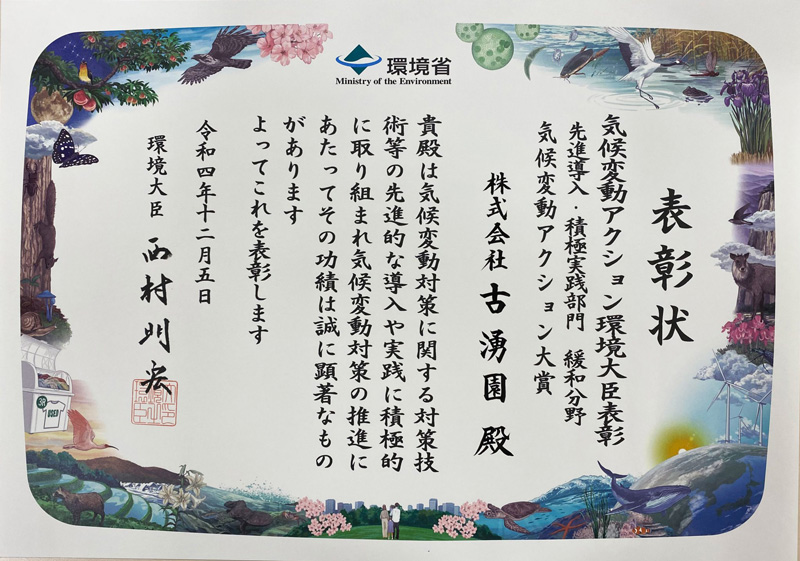 環境省
Ministry of the Environment
表彰状
気候変動アクション環境大臣表彰
先進導入・積極実践部門 緩和分野
気候変動アクション大賞
株式会社 古湧園 殿
貴殿は気候変動対策に関する対策技
術等の先進的な導入や実践に積極的
に取り組まれ気候変動対策の推進に
あたってその功績は誠に顕著なもの
があります
よってこれを表彰します
令和四年十二月五日
環境大臣 西村明宏
USED